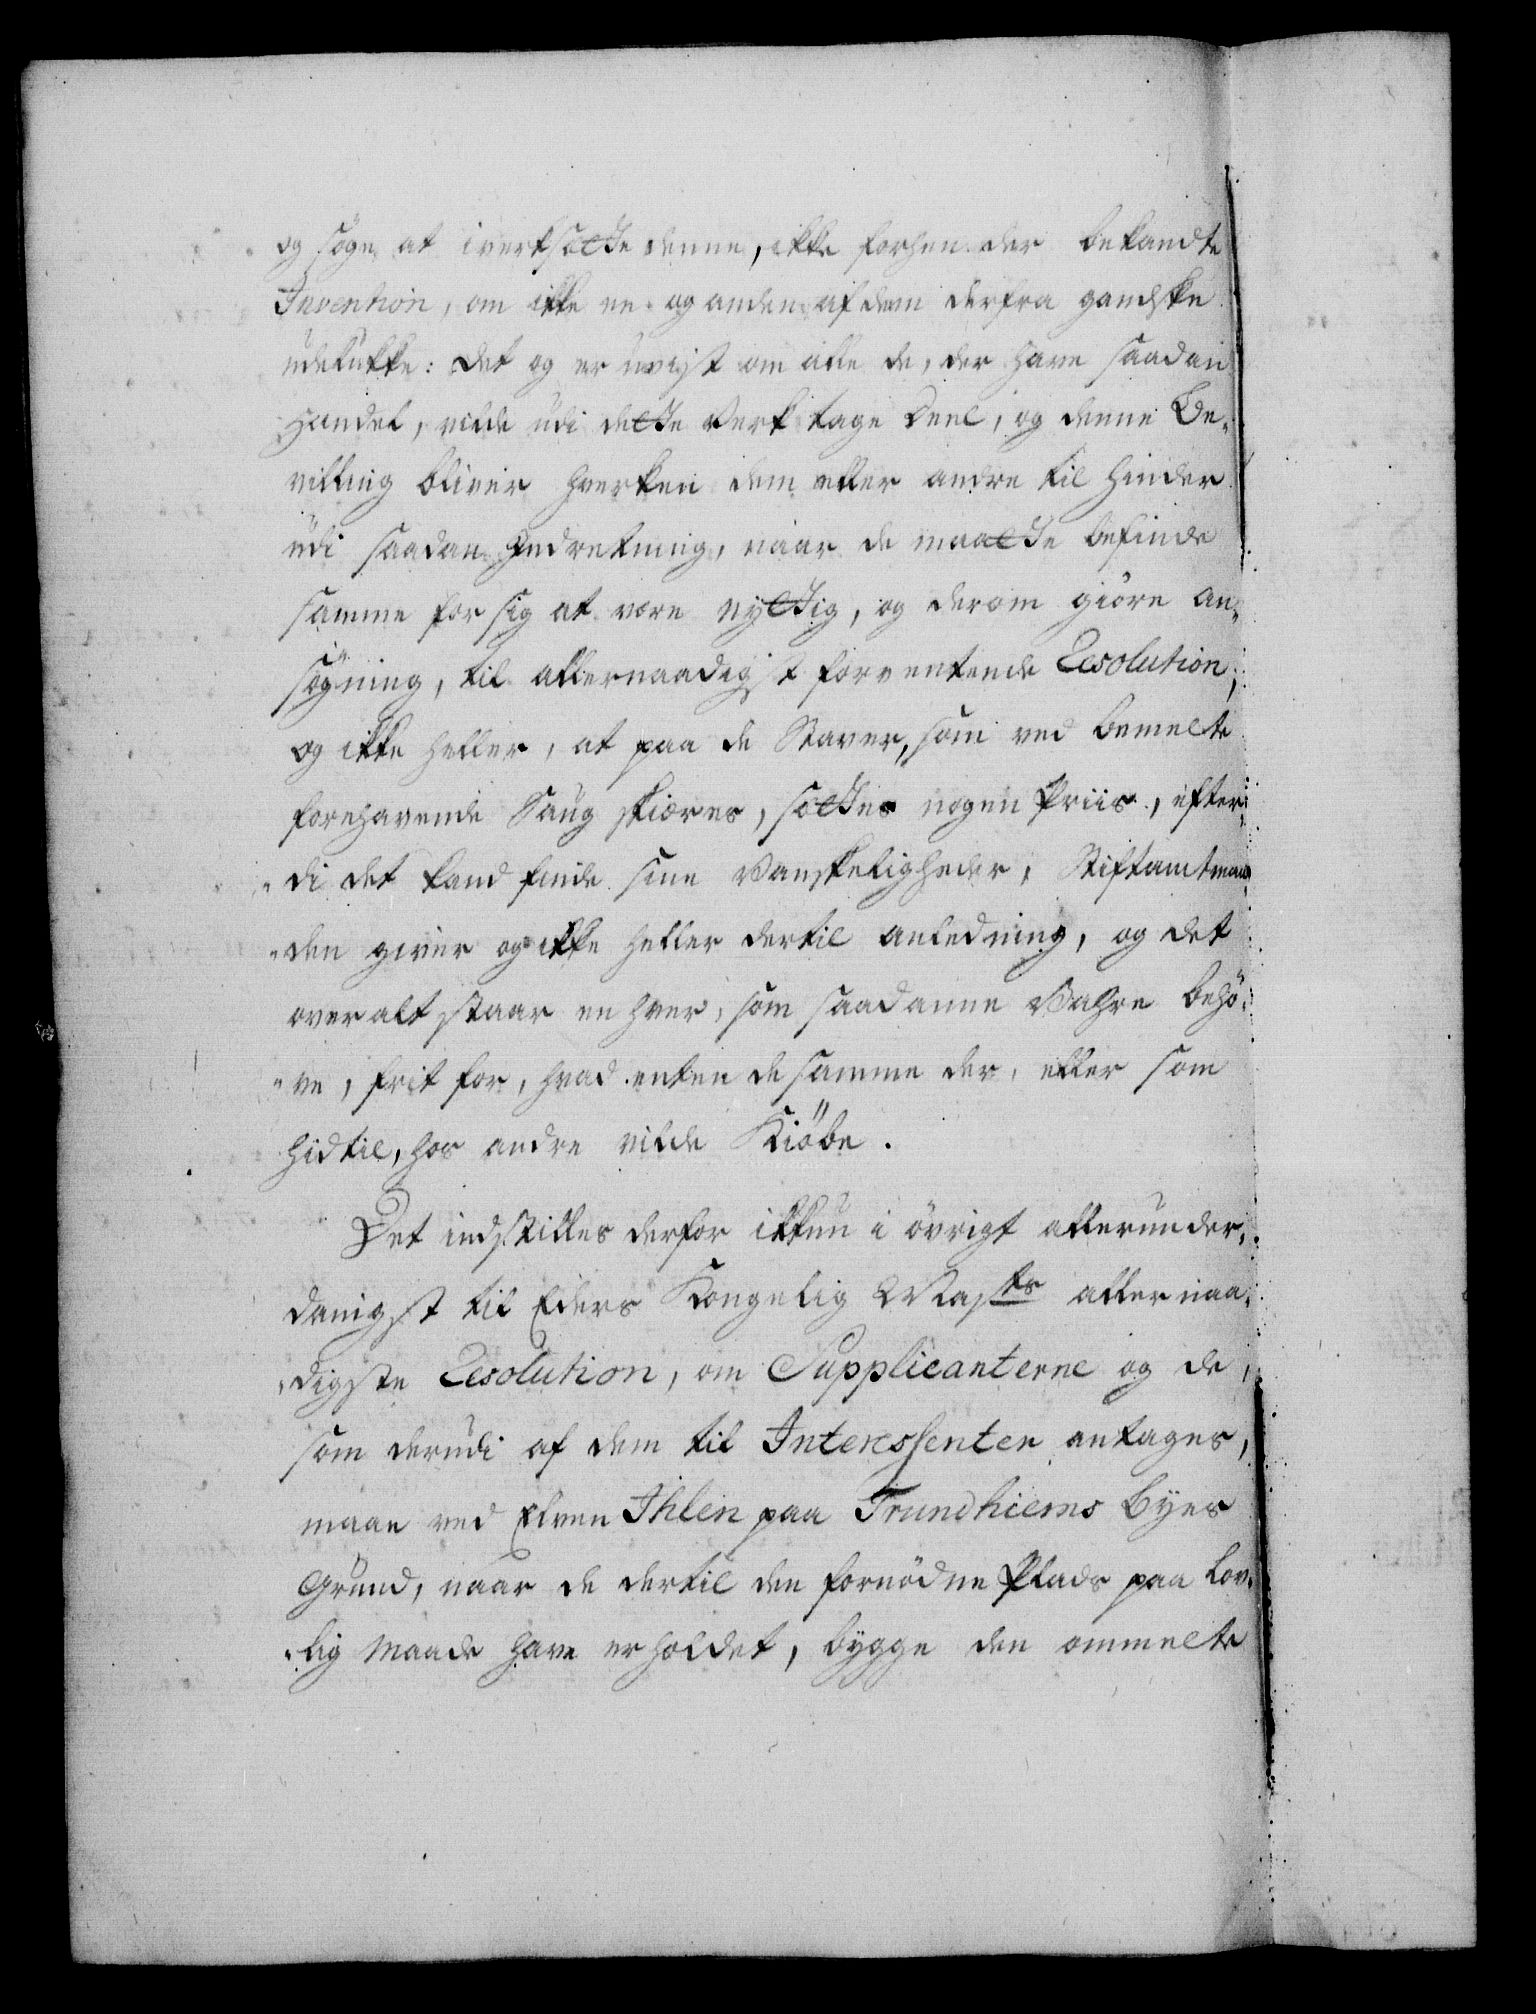 og søge at iverksætte denne, ikke forhen der bekandte
Invention, om ikke en og anden af dem derfra gandske
udelukke: Det og er uvist om alle de, der have saadan
Handel, vilde udi dette Verk tage Deel, og denne Be„
villing bliver hverken dem eller andre til Hinder
udi saadan Indretning, naar de maatte befinde
samme for sig at være nyttig, og derom giöre an„
søgning, til allernaadigst forventende Resolution,
og ikke heller, at paa de Staver, som ved bemelte
forehavende Saug skiæres, sættes nogen Priis, efter„
„di det kand finde sine Vanskeligheder, Stiftamtman„
„den giver og ikke heller dertil anledning, og det
overalt staar en hver, som saadanne Vahre behö„
„ve, frit for, hvad enten de samme der, eller som
hidtil, hos andre vilde Kiöbe.
Det indstilles derfor ikkun i övrigt allerunder„
danigst til Eders Kongelig Mayts allernaa„
„digste Resolution, om Supplicanterne og de,
som derudi af dem til Interessenter antages,
maae ved Elven Ihlen paa Trundhiems Byes
Grund, naar de dertil den fornödne Plads paa lov„
„lig Maade have erholdet, bygge den ommelte